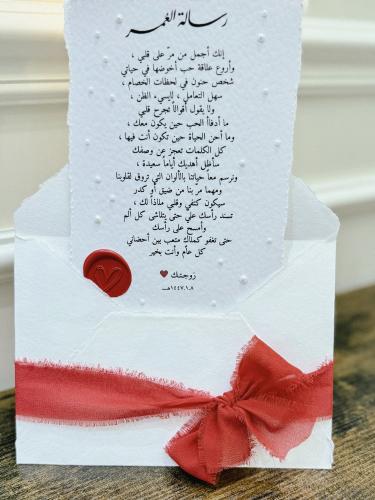 رسالة العمر
إنك أجمل من مرّ على قلبي ،
وأروع علاقة حب أخوضها في حياتي
شخص حنون في لحظات الخصام ،
سهل التعامل ، لايسيء الظن ،
ولا يقول أقوالاً تجرح قلبي
ما أدفأ الحب حين يكون معك ،
وما أحن الحياة حين تكون أنت فيها ،
كل الكلمات تعجز عن وصفك
سأظل أهديك أياماً سعيدة ،
ونرسم معاً حياتنا بالألوان التي تروق لقلوبنا
ومهما مرّ بنا من ضيق أو كدر
سيكون كتفي وقلبي ملاذاً لك ،
تسند رأسك علي حتى يتلاشى كل ألم
وأمسح على رأسك
حتى تغفو كملاك متعب بين أحضاني
كل عام وأنت بخير
زوجتك ❤
١٤٤٧.١.٨هـ